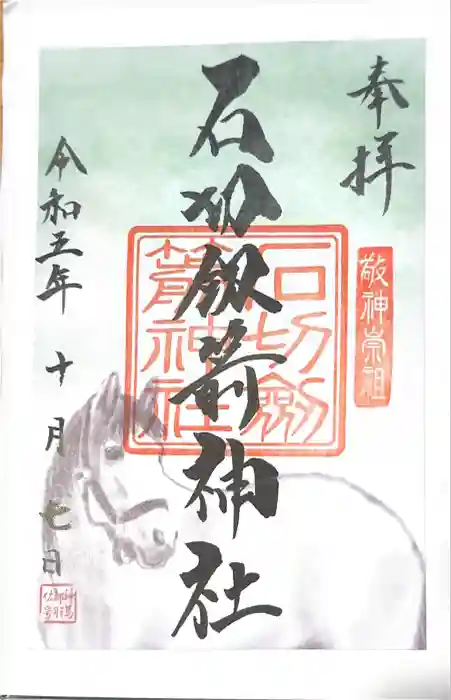 奉拝
敬神崇祖
石切劔箭神社
石切劔
箭神社
令和五年十月七日